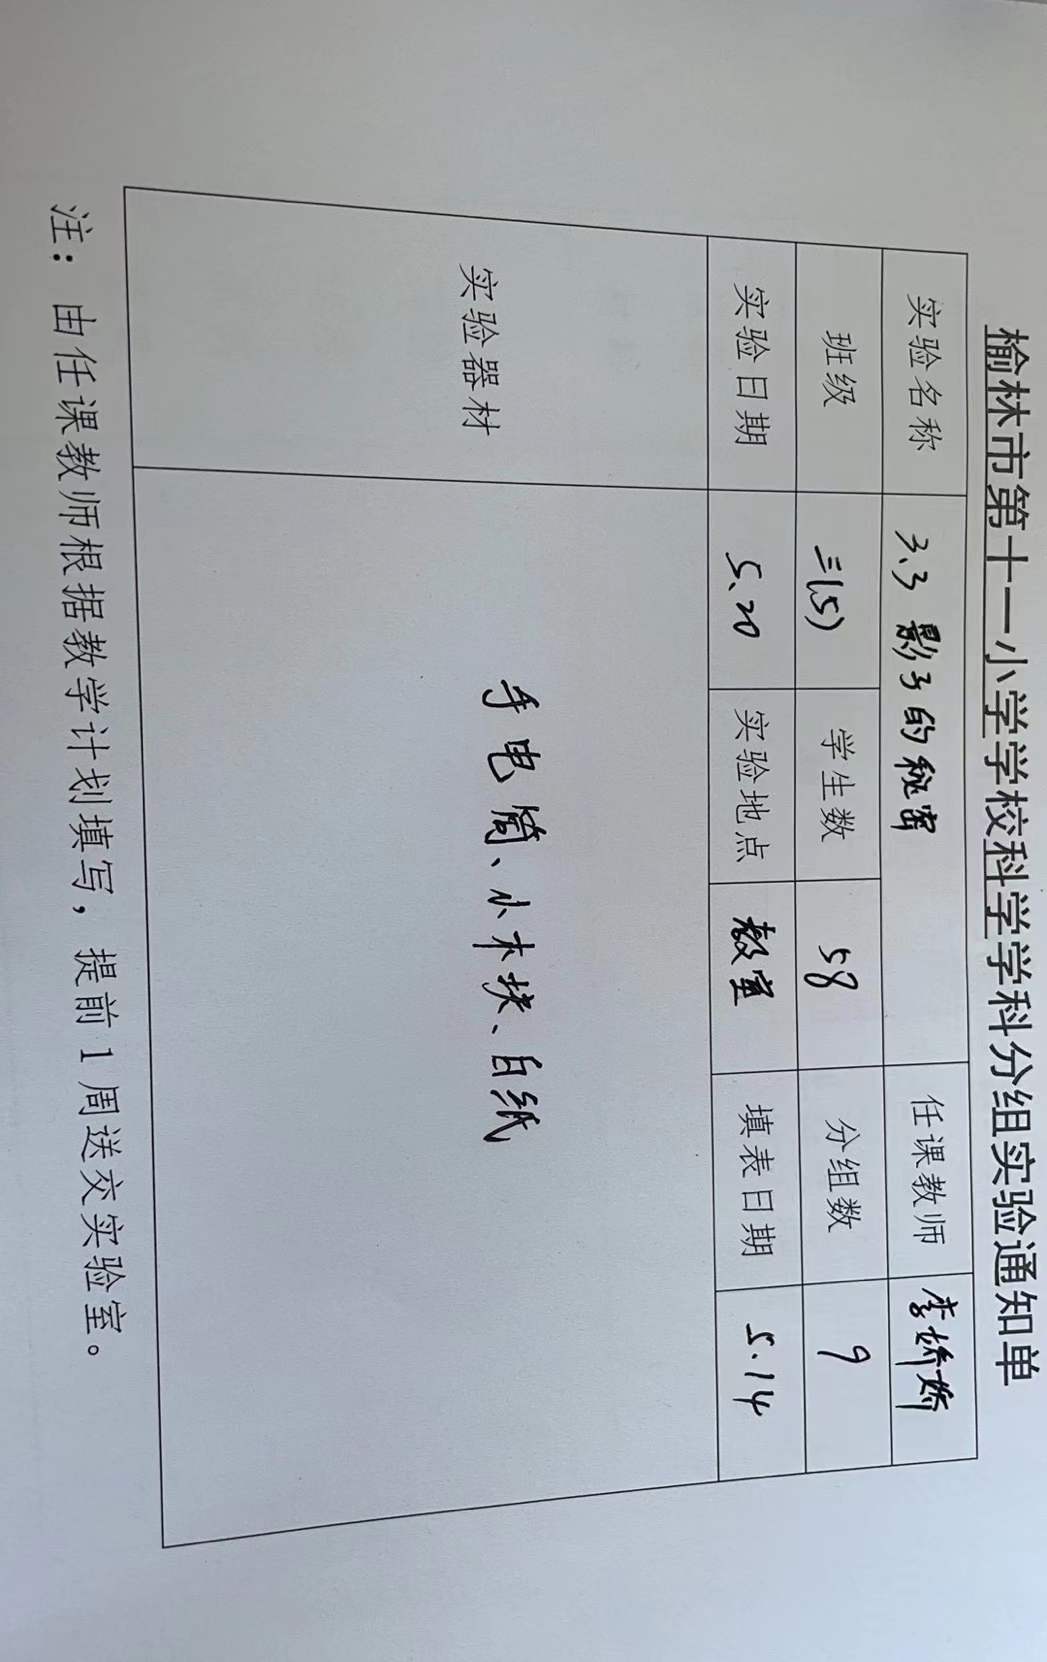 榆林市第十一小学学校科学学科分组实验通知单
实验名称 3.3 影子的秘密 任课教师 李娇娇
班级 三(5) 学生数 58 分组数 9
实验日期 5.20 实验地点 教室 填表日期 5.14
实验器材 手电筒、小木块、白纸
注：由任课教师根据教学计划填写，提前1周送交实验室。